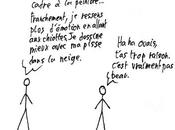 cadre à la peinture...
Franchement, je ressens
plus d'émotion en allant
aux chiottes. Je dessine
mieux avec ma pisse
dans la neige.
Ha ha ouais,
t'as trop raison.
C'est vraiment pas
beau.